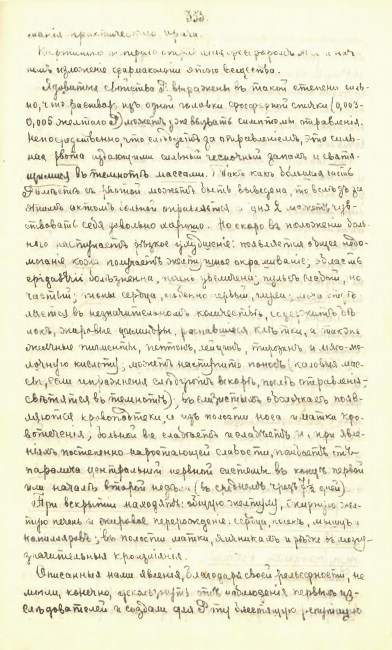 333.
манія практическаго врача.
Картиною острого отравленія фосфоромъ мы и нач-
немъ изложеніе фармакологіи этого вещества.
Ядовитыя свойства P выражены въ такой степени силь-
но, что растворъ изъ одной головки фосфорной спички (0,003-
0,005 желтаго P) можетъ уже вызвать симптомы отравленія.
Непосредственно, что слѣдуетъ за отравленіемъ, это силь-
ная рвота издающими сильный чесночный запахъ и свѣтя-
щимися въ темнотѣ массами. Такъ какъ большая часть
P вмѣстѣ съ рвотой можетъ быть выведена, то вслѣдъ за
этимъ актомъ больной оправляется и дня 2 можетъ чув-
ствовать себя довольно хорошо. Но скоро въ положеніи боль-
ного наступаетъ рѣзкое ухудшеніе: появляется общее недо-
моганіе, кожа получаетъ желтушное окрашиваніе; область
предсердія болѣзненна, печень увеличена; пульсъ слабый, но
частый; тоны сердца, особенно первый, глухи; моча отдѣ-
ляется въ незначительномъ количествѣ, содержитъ бѣ-
локъ, жировые цилиндры, распавшіяся клѣтки, а также
желчные пигменты, пептонъ, лейцинъ, тирозинъ и мясо-мо-
лочную кислоту; можетъ наступить поносъ (каловыя мас-
сы, если испражненія слѣдуютъ вскорѣ послѣ отравленія
свѣтятся въ темнотѣ); въ слизистыхъ оболочкахъ появ-
ляются кровоподтеки, а изъ полости носа и матки кро-
вотеченія; больной все слабѣетъ и слабѣетъ и, при явле-
ніяхъ постепенно наростающей слабости, погибаетъ отъ
паралича центральной нервной системы въ концѣ первой
или началѣ второй недѣли (въ среднемъ чрезъ 7½ дней)
При вскрытіи находятъ: общую желтуху, ожирѣлую жел-
тую печень и жировое перерожденіе: сердца, почекъ, мышцъ и
капилляровъ; въ полости матки, яичникахъ и рѣже въ мозгу
значительныя кровоизліянія.
Описанныя нами явленія, благодаря своей рельефности, не
могли, конечно, ускользнуть отъ наблюденія первыхъ из-
слѣдователей и создали для P ту блестящую репутацію